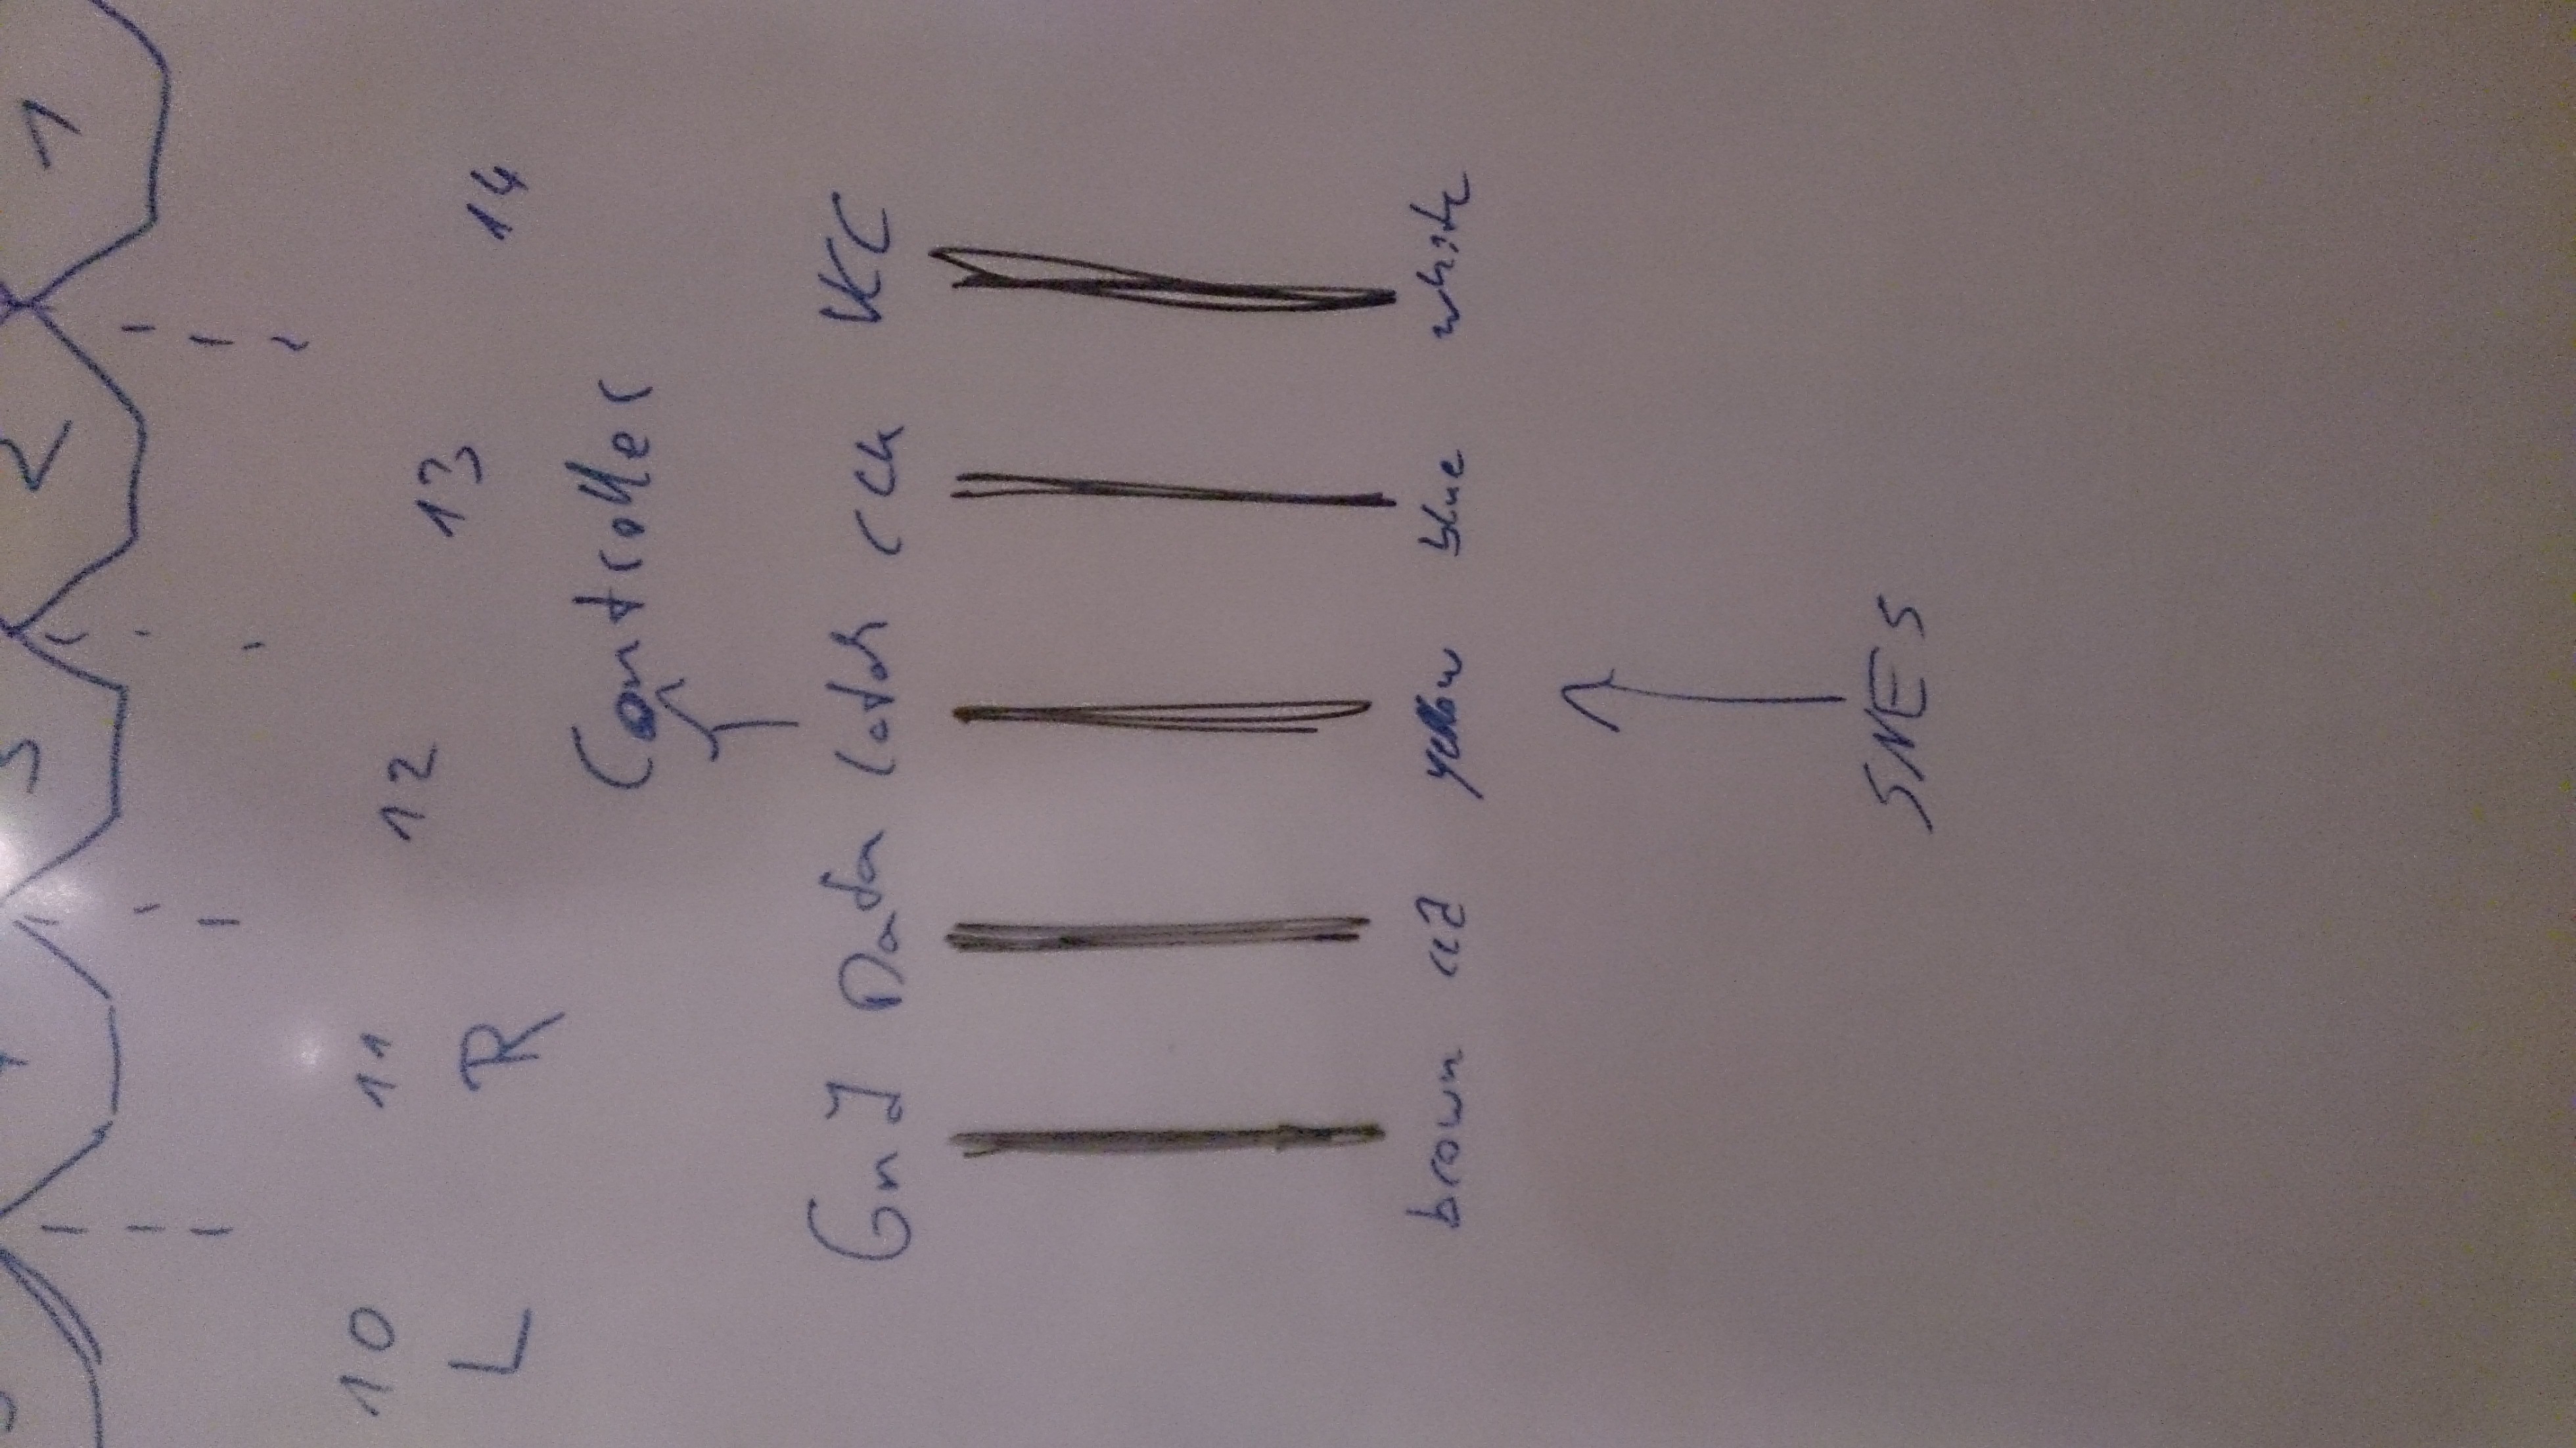 2 1
10 11 12 13 14
L R
Controller
Gnd Data latch clk VCC
brown red yellow blue white
SNES